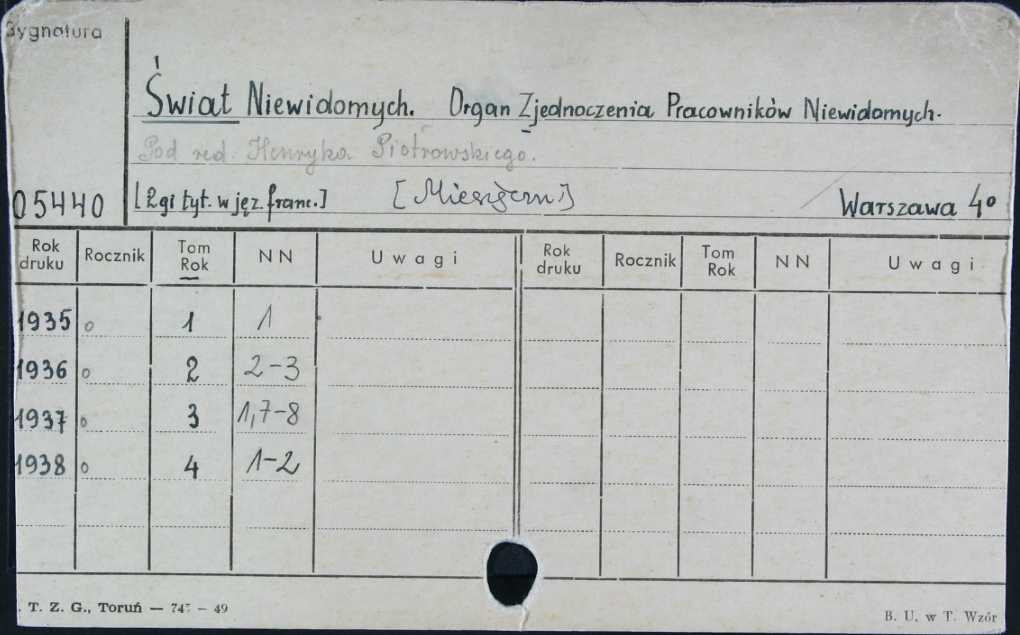 Sygnatura
Świat Niewidomych. Organ Zjednoczenia Pracowników Niewidomych.
Pod red. Henryka Piotrowskiego.
05440 [2gi tyt. w jęz. franc.] [Miesięczn.] Warszawa 4°
Rok druku Rocznik Tom Rok NN Uwagi Rok druku Rocznik Tom Rok NN Uwagi
1935 o 1 1
1936 o 2 2-3
1937 o 3 1,7-8
1938 o 4 1-2
. T. Z. G., Toruń — 747 — 49 B. U. w T. Wzór